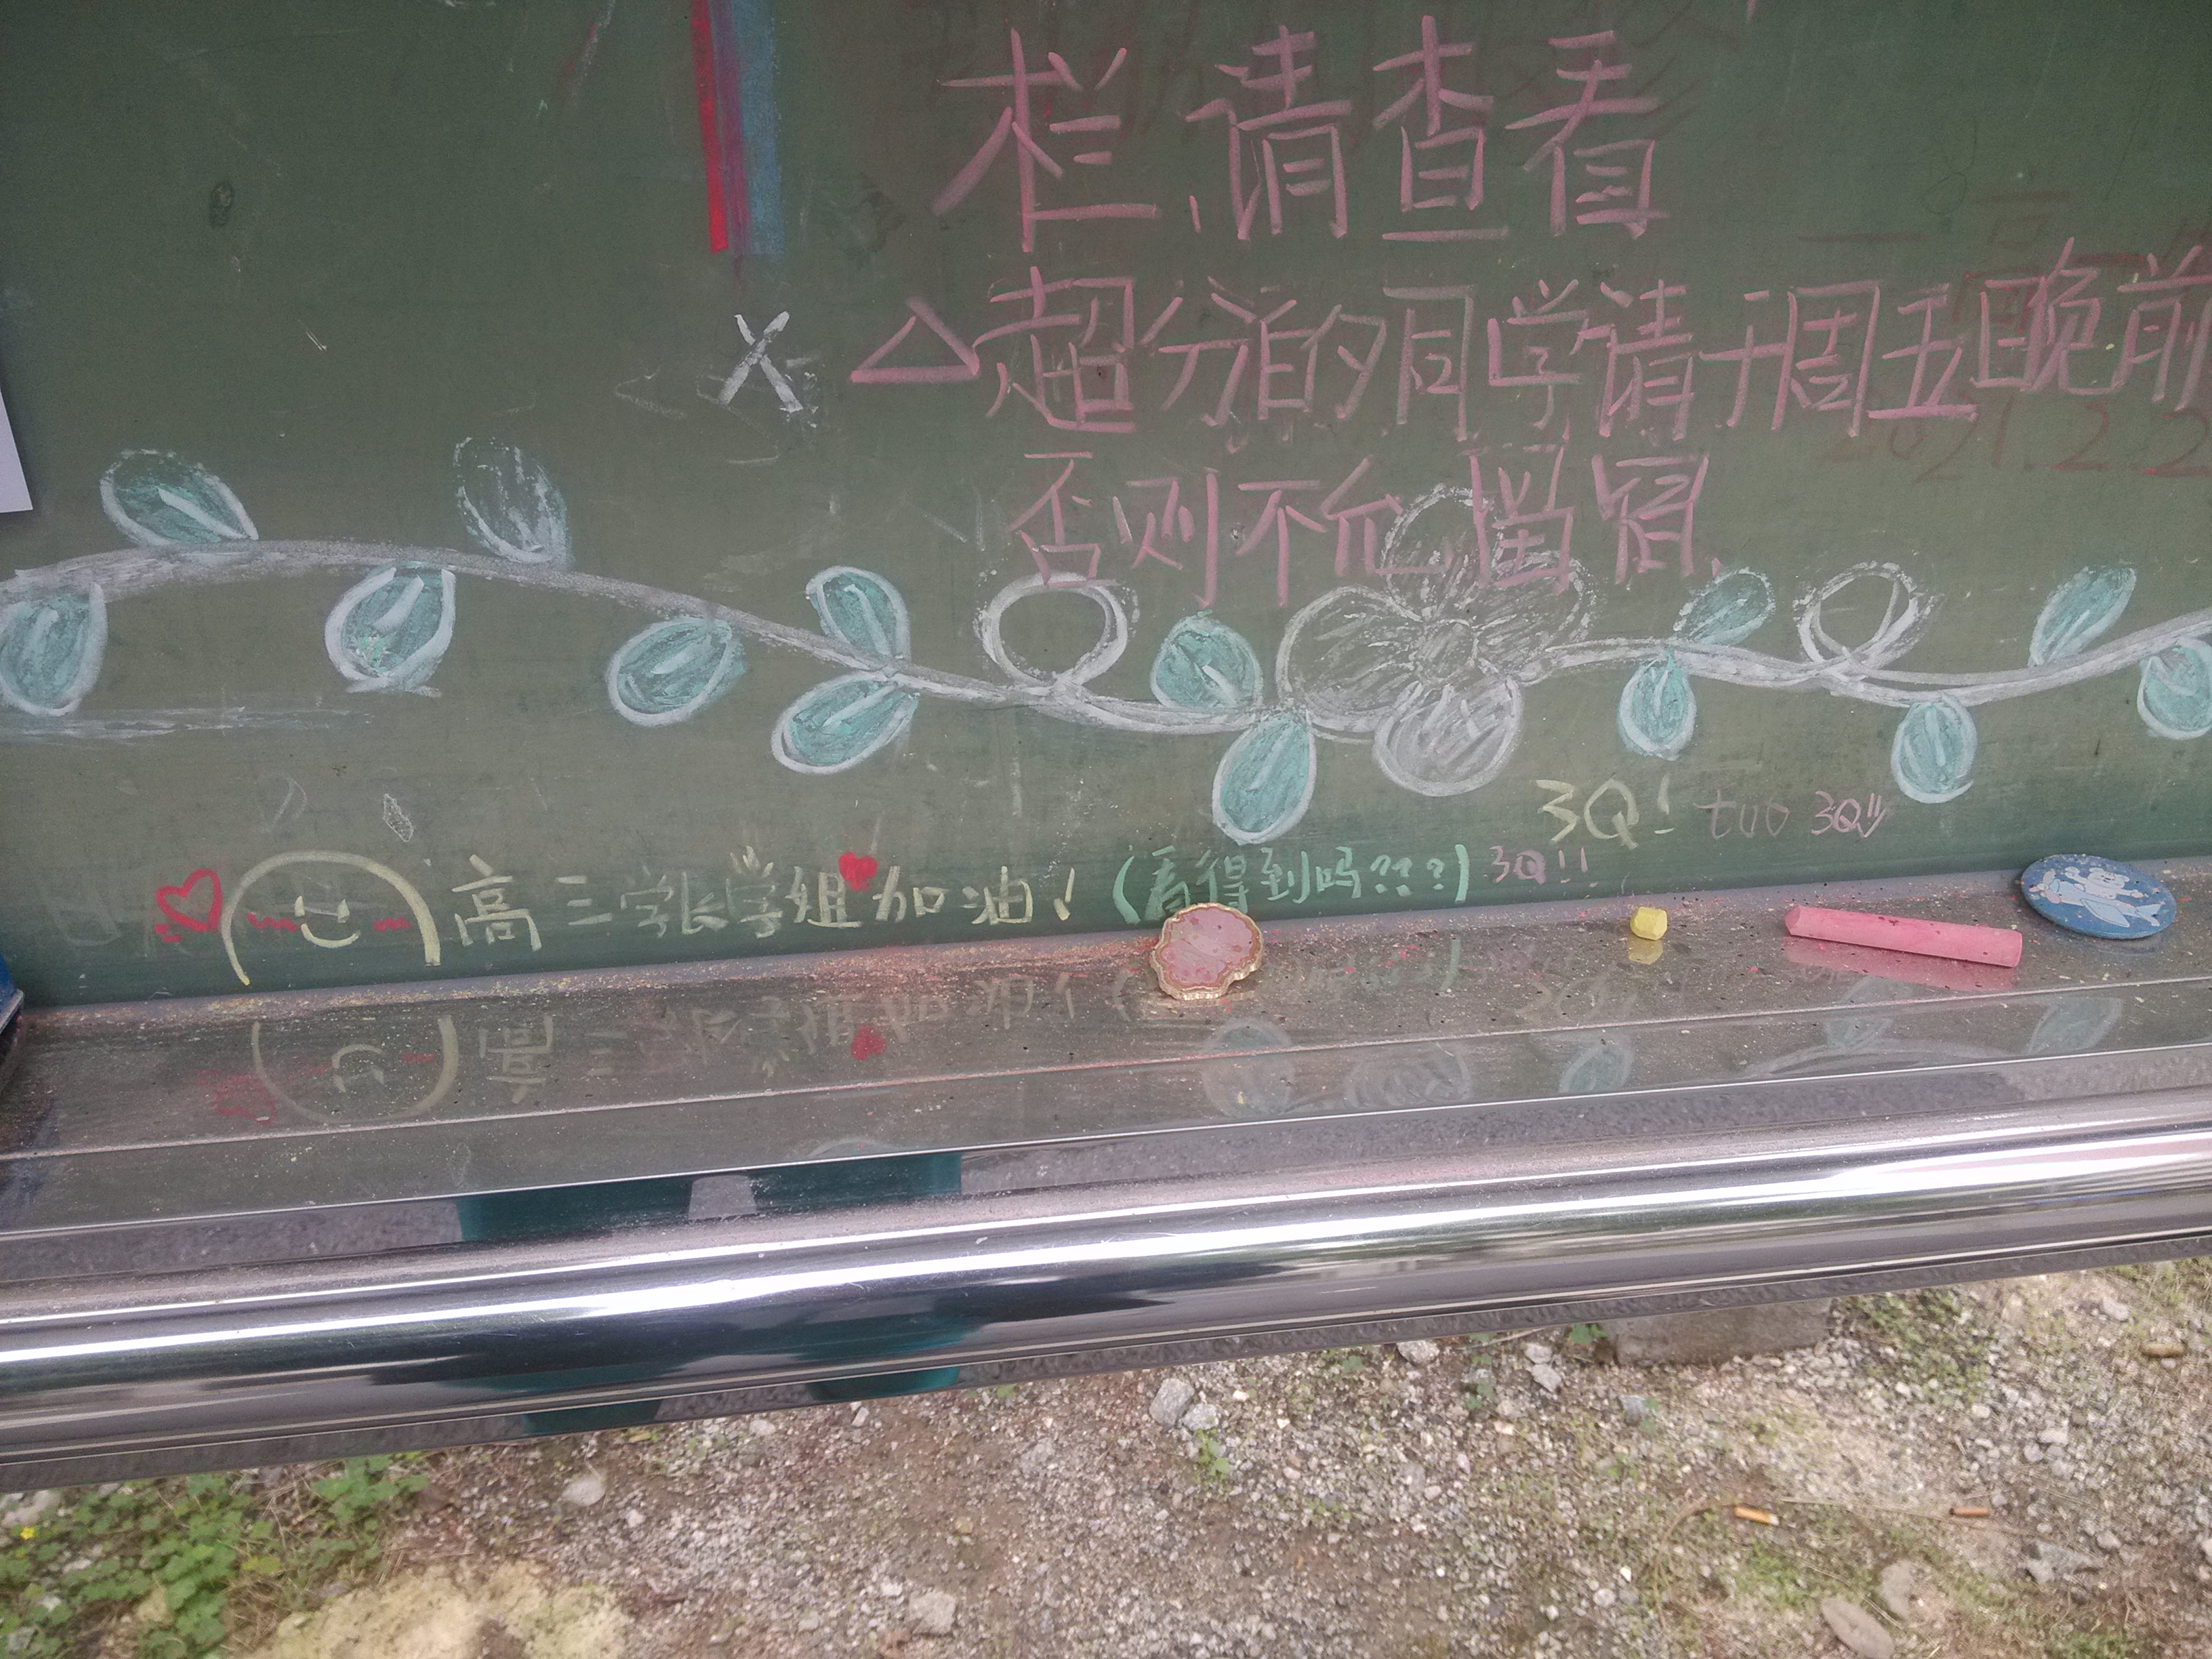 栏,请查看
X △超分泊的同学请于周五晚前
否则不允留宿.
2021.2.2
3Q! tuo 3Q!!
高三学长学姐加油! (看得到吗???) 3Q!!